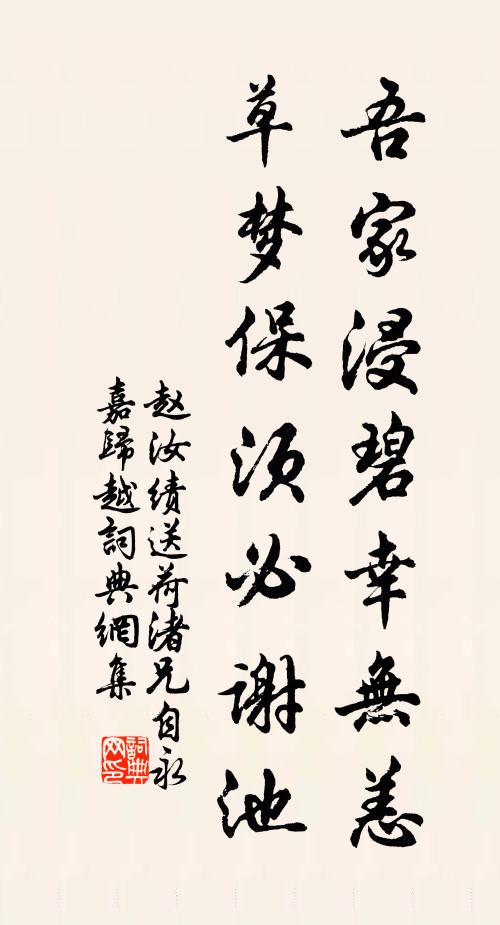 吾家浸碧幸無恙
草梦保须必谢池
赵汝绩送荷渚兄自永
嘉歸越詞典網集
詞典
网印